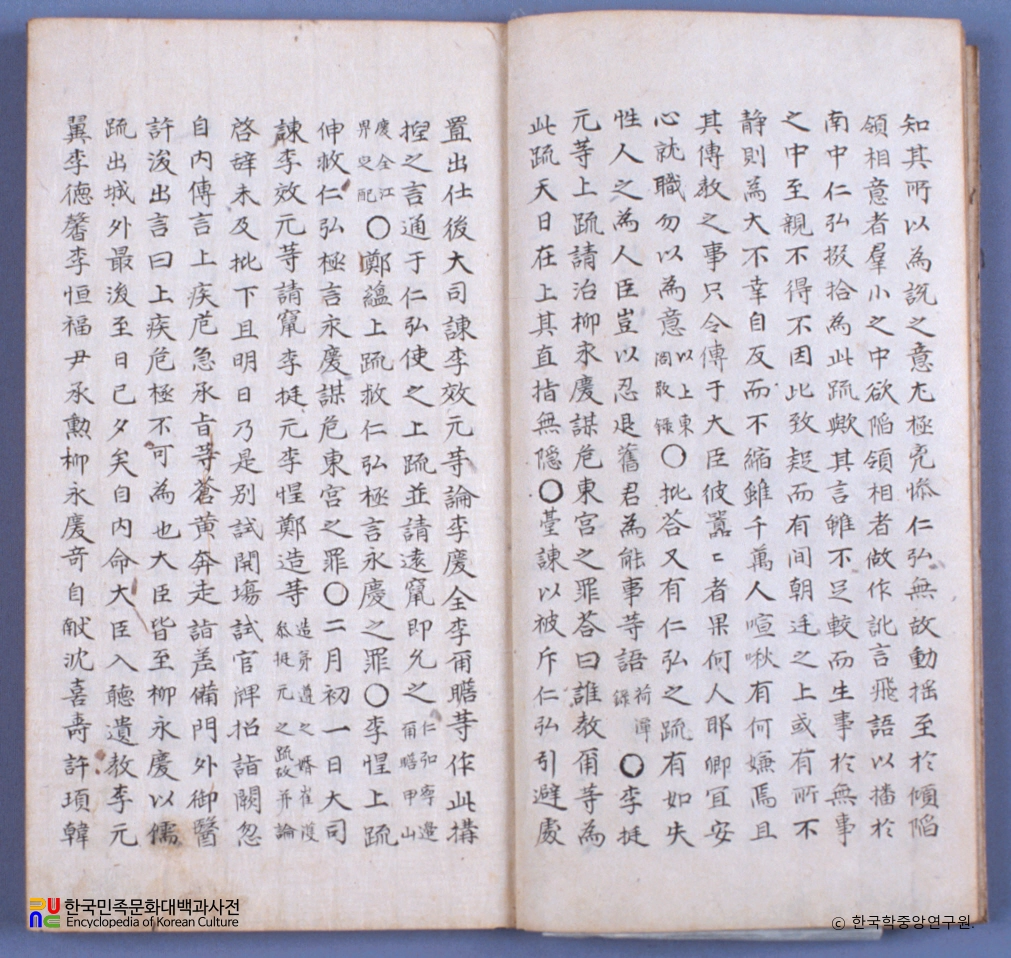 知其所以為說之意尤極兇慘仁弘無故動揺至於傾陷
領相意者羣小之中欲陷領相者做作訛言飛語以播於
南中仁弘掇拾為此疏歟其言雖不足較而生事於無事
之中至親不得不因此致疑而有间朝廷之上或有所不
静則為大不幸自反而不縮雖千萬人喧啾有何嫌焉且
其傳教之事只令傳于大臣彼囂〻者果何人耶卿宜安
心就職勿以為意 以上東閣散錄 〇批荅又有仁弘之疏有如失
性人之為人臣豈以忍是舊君為能事等語 荷潭錄 〇李挺
元等上疏請治柳永慶謀危東宮之罪荅曰誰教甭等為
此疏天日在上其直指無隠〇臺諫以被斥仁弘引避處
置出仕後大司諌李效元等論李慶全李甭瞻等作此搆
捏之言通于仁弘使之上疏並請遠竄即允之 仁弘寧邉甭瞻甲山
慶全江界定配 〇鄭蘊上疏救仁弘極言永慶之罪〇李惺上疏
伸救仁弘極言永慶謀危東宮之罪〇二月初一日大司
諌李效元等請竄李挺元李惺鄭造等 造弟道之婿崔濩叅挺元之疏故并論
啓辞未及批下且明日乃是别試開場試官牌招詣闕忽
自内傳言上疾危急承旨等蒼黄奔走詣差備門外御醫
許浚出言曰上疾危極不可為也大臣皆至柳永慶以儒
疏出城外最後至日已夕矣自内命大臣入聽遺教李元
翼李德馨李恒福尹承勲柳永慶竒自献沈喜壽許頊韓
한국민족문화대백과사전
Encyclopedia of Korean Culture
© 한국학중앙연구원.